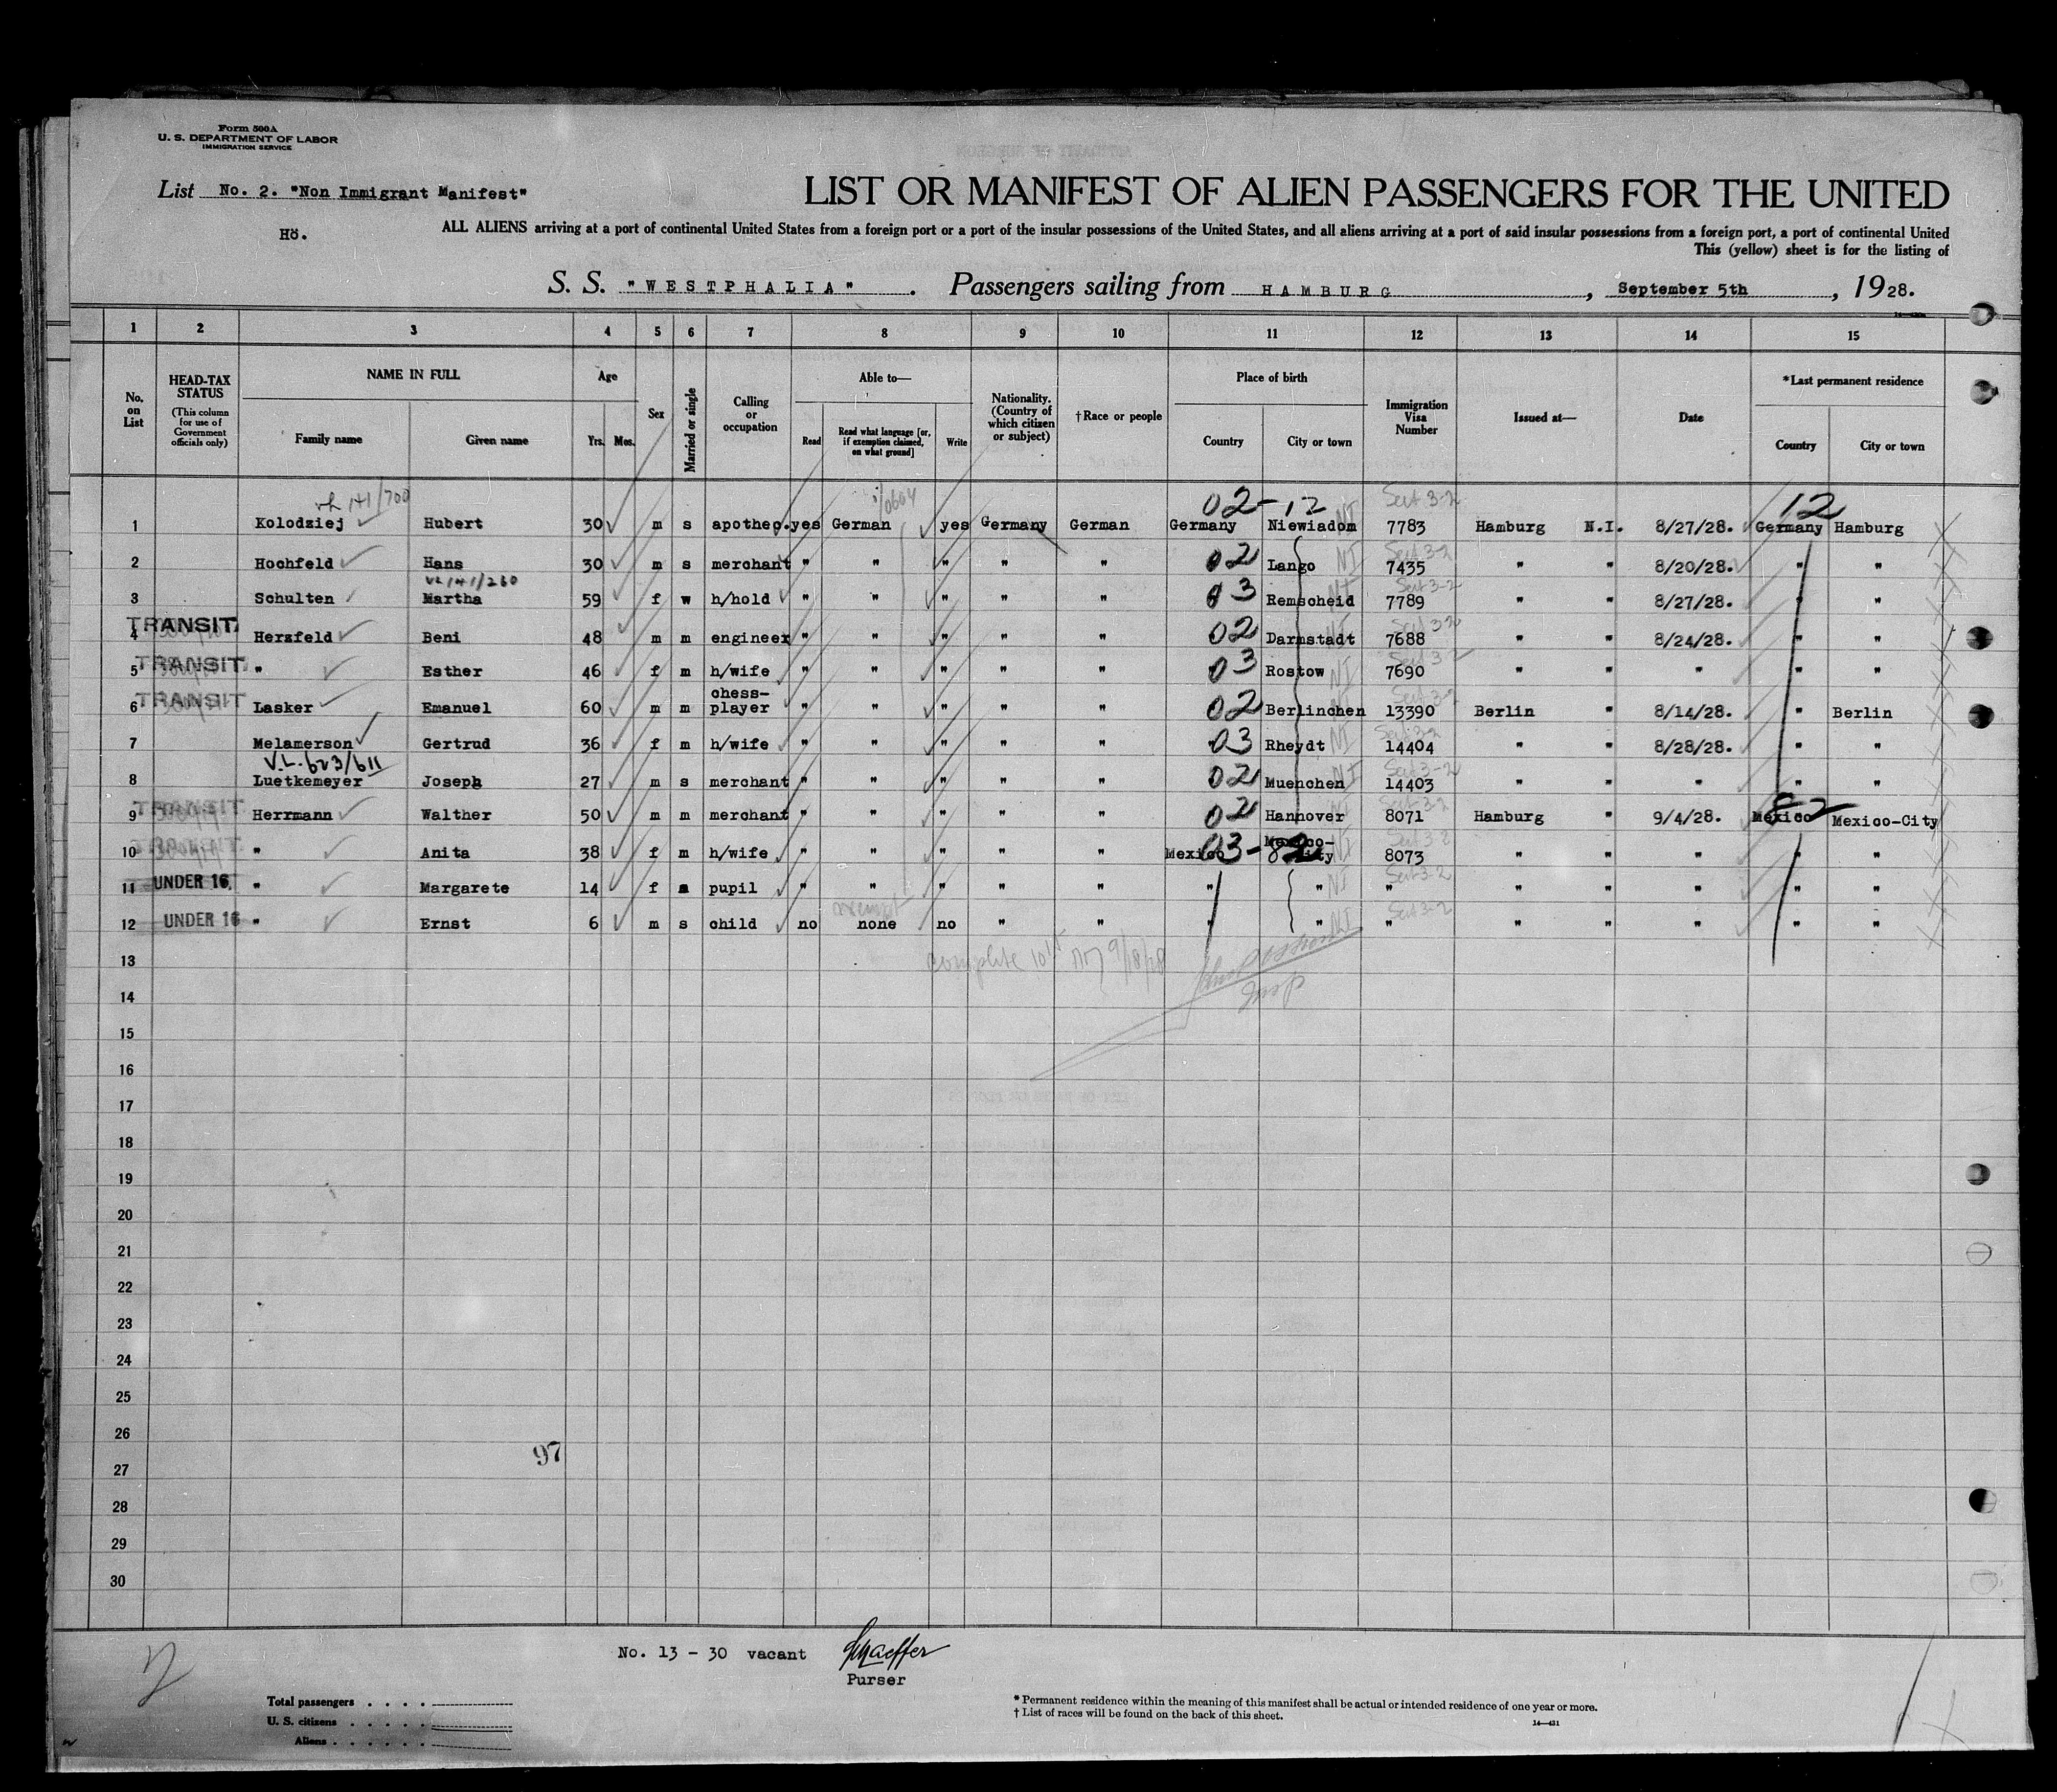 Form 500A
U. S. DEPARTMENT OF LABOR
IMMIGRATION SERVICE
List No. 2. "Non Immigrant Manifest"
Hö.
LIST OR MANIFEST OF ALIEN PASSENGERS FOR THE UNITED
ALL ALIENS arriving at a port of continental United States from a foreign port or a port of the insular possessions of the United States, and all aliens arriving at a port of said insular possessions from a foreign port, a port of continental United
This (yellow) sheet is for the listing of
S. S. "WESTPHALIA". Passengers sailing from HAMBURG, September 5th, 1928.
1 2 3 4 5 6 7 8 9 10 11 12 13 14 15
No. on List
HEAD-TAX STATUS (This column for use of Government officials only)
NAME IN FULL
Family name Given name
Age
Yrs. Mos.
Sex
Married or single
Calling or occupation
Able to—
Read
Read what language [or, if exemption claimed, on what ground]
Write
Nationality. (Country of which citizen or subject)
†Race or people
Place of birth
Country City or town
Immigration Visa Number
Issued at—
Date
*Last permanent residence
Country City or town
141/700 02-12 Sect 3-2 12
1 Kolodziej Hubert 30 m s apothec. yes German yes Germany German Germany Niewiadom NI 7783 Hamburg N.I. 8/27/28. Germany Hamburg
2 Hochfeld Hans 30 m s merchant " " " " " 02 Lango NI Sect 3-2 7435 " " 8/20/28. " "
141/260
3 Schulten Martha 59 f w h/hold " " " " " 03 Remscheid NI Sect 3-2 7789 " " 8/27/28. " "
TRANSIT
4 Herzfeld Beni 48 m m engineer " " " " " 02 Darmstadt NI Sect 3-2 7688 " " 8/24/28. " "
TRANSIT
5 " Esther 46 f m h/wife " " " " " 03 Rostow NI Sect 3-2 7690 " " " " "
TRANSIT
6 Lasker Emanuel 60 m m chess-player " " " " " 02 Berlinchen NI Sect 3-2 13390 Berlin " 8/14/28. " Berlin
7 Melamerson Gertrud 36 f m h/wife " " " " " 03 Rheydt NI Sect 3-2 14404 " " 8/28/28. " "
V.L. 623/611
8 Luetkemeyer Joseph 27 m s merchant " " " " " 02 Muenchen NI Sect 3-2 14403 " " " " "
TRANSIT
9 Herrmann Walther 50 m m merchant " " " " " 02 Hannover NI Sect 3-2 8071 Hamburg " 9/4/28. Mexico 82 Mexico-City
TRANSIT
10 " Anita 38 f m h/wife " " " " " Mexico 03-82 Mexico-City NI Sect 3-2 8073 " " " " "
11 UNDER 16. " Margarete 14 f s pupil " " " " " " " NI Sect 3-2 " " " " " "
12 UNDER 16 " Ernst 6 m s child no none no " " " " NI Sect 3-2 " " " " " "
complete 9/18/28
Insp
13
14
15
16
17
18
19
20
21
22
23
24
25
26
97
27
28
29
30
No. 13 - 30 vacant Schaeffer
Purser
Total passengers . . . .
U. S. citizens . . . . .
Aliens . . . . . .
* Permanent residence within the meaning of this manifest shall be actual or intended residence of one year or more.
† List of races will be found on the back of this sheet.
14—431